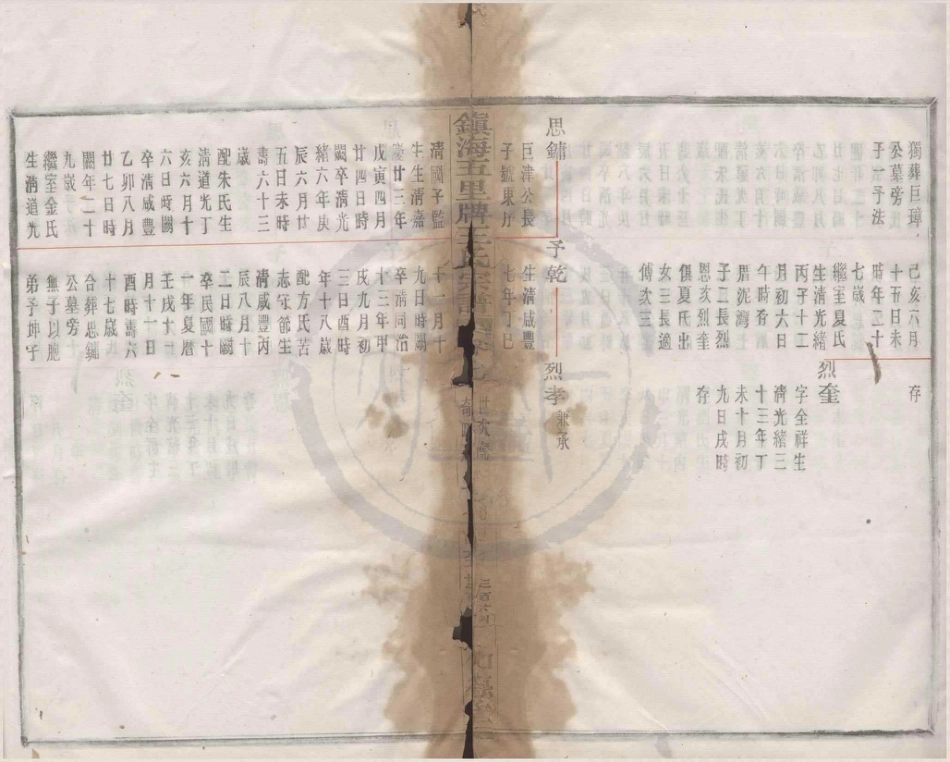 獨葬巨璋
公墓旁以
于坤子法
己亥六月
十五日未
時年二十
七歲
繼室夏氏
生清光緒
丙子十二
月初六日
午時
厝泥灣
子二長烈
恩次烈奎
俱夏氏出
女三長適
傅次三
存
烈奎
字全祥生
清光緒三
十三年丁
未十月初
九日戌時
存
思鏞
巨津公長
子號東方
予乾
生清咸豐
七年丁巳
烈孝
兼承
鎮海五里牌王氏宗譜
世次
清國子監
生生清嘉
慶廿三年
戊寅四月
廿四日時
闕卒清光
緒六年庚
辰六月廿
五日未時
壽六十三
歲
配朱氏生
清道光丁
亥六月十
六日時闕
卒清咸豐
乙卯八月
廿七日時
闕年二十
九歲
繼室金氏
生清道光
十一月十
九日時闕
卒清同治
十三年甲
戌九月初
三日酉時
年十八歲
配方氏苦
志守節生
清咸豐丙
辰八月十
二日時闕
卒民國十
一年夏曆
壬戌十一
月十一日
酉時壽六
十七歲
合葬思鏞
公墓旁
無子以胞
弟予坤子